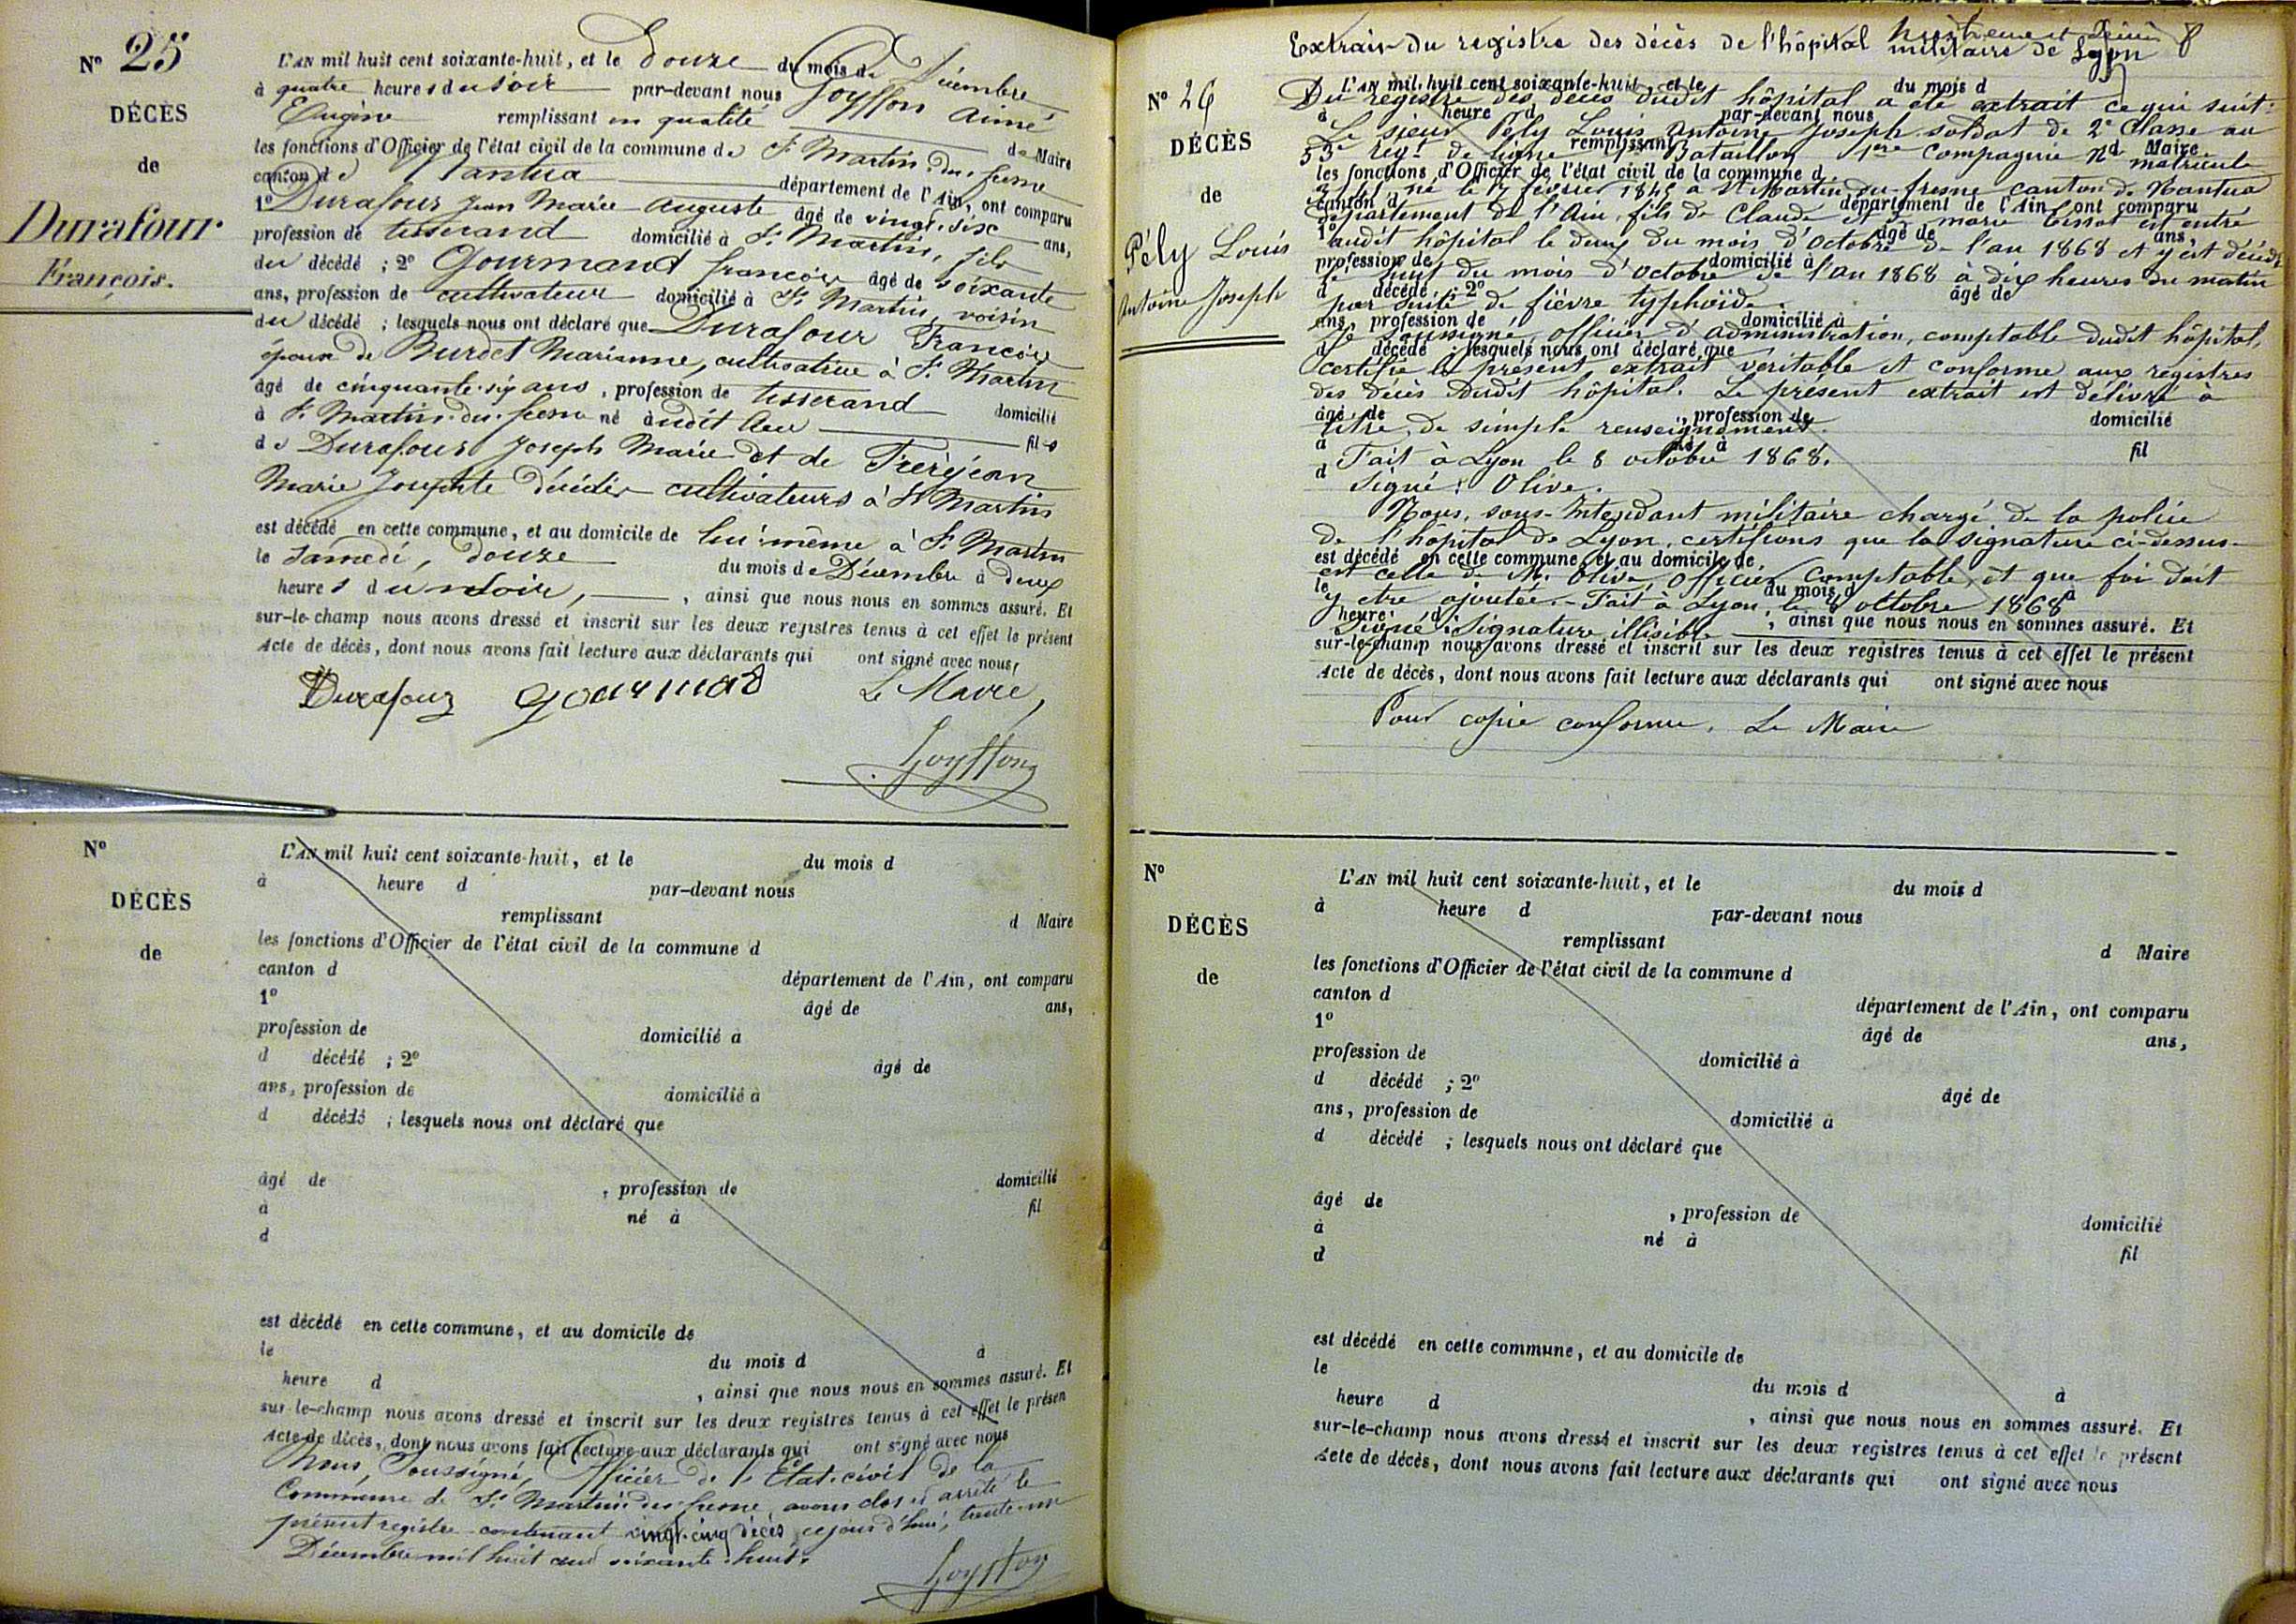 N° 25
DÉCÈS
de
Durafour
François.
L'AN mil huit cent soixante-huit, et le Douze du mois de Décembre
à quatre heures du soir par-devant nous Goyffon Aimé
Eugène remplissant en qualité de Maire
les fonctions d'Officier de l'état civil de la commune de St Martin du fresne
canton de Nantua département de l'Ain, ont comparu
1° Durafour Jean Marie Auguste âgé de vingt-six ans,
profession de tisserand domicilié à St Martin, fils
du décédé ; 2° Gourmand françois âgé de soixante
ans, profession de cultivateur domicilié à St Martin, voisin
du décédé ; lesquels nous ont déclaré que Durafour François
époux de Burdet Marianne, cultivatrice à St Martin
âgé de cinquante-six ans, profession de tisserand domicilié
à St Martin-du-fresne né audit lieu fils
de Durafour Joseph Marie et de Frèrejean
Marie Josephte décédés cultivateurs à St Martin
est décédé en cette commune, et au domicile de lui-même à St Martin
le samedi, douze du mois de Décembre à deux
heures du soir, , ainsi que nous nous en sommes assuré. Et
sur-le-champ nous avons dressé et inscrit sur les deux registres tenus à cet effet le présent
Acte de décès, dont nous avons fait lecture aux déclarants qui ont signé avec nous,
Durafour gourmad Le Maire,
Goyffon
N°
DÉCÈS
de
L'AN mil huit cent soixante-huit, et le du mois d
à heure d par-devant nous
remplissant d Maire
les fonctions d'Officier de l'état civil de la commune d
canton d département de l'Ain, ont comparu
1° âgé de ans,
profession de domicilié à
d décédé ; 2° âgé de
ans, profession de domicilié à
d décédé ; lesquels nous ont déclaré que
âgé de , profession de domicilié
à né à fil
d
est décédé en cette commune, et au domicile de
le du mois d à
heure d , ainsi que nous nous en sommes assuré. Et
sur-le-champ nous avons dressé et inscrit sur les deux registres tenus à cet effet le présen
Acte de décès, dont nous avons fait lecture aux déclarants qui ont signé avec nous
Nous, Soussigné, Officier de l'État-civil de la
Commune de St Martin du fresne avons clos et arrêté le
présent registre contenant vingt-cinq décès cejourd'hui, trente-un
Décembre mil huit cent soixante-huit.
Goyffon
Extrait du registre des décès de l'hôpital militaire de Lyon
N° 26
DÉCÈS
de
Pély Louis
Antoine Joseph
L'AN mil huit cent soixante-huit, et le du mois d
Du registre des décès dudit hôpital a été extrait ce qui suit :
à heure d par-devant nous
Le sieur Pély Louis Antoine Joseph soldat de 2e Classe au
remplissant d Maire
53e regt de ligne Bataillon 1ere Compagnie No matricule
les fonctions d'Officier de l'état civil de la commune d
né le 7 février à St Martin-du-fresne canton de Nantua
canton d département de l'Ain, ont comparu
département de l'Ain, fils de Claude et de marie Tissot est entré
1° âgé de ans,
audit hôpital le deux du mois d'octobre de l'an 1868 et y est décédé
profession de domicilié à
le huit du mois d'octobre de l'an 1868 à dix heures du matin
d décédé ; 2° âgé de
par suite de fièvre typhoïde.
ans, profession de domicilié à
Je soussigné, officier d'administration, comptable dudit hôpital,
d décédé ; lesquels nous ont déclaré que
certifie le présent extrait véritable et conforme aux registres
des décès dudit hôpital. Le présent extrait est délivré à
âgé de , profession de domicilié
titre de simple renseignement.
à né à fil
Fait à Lyon le 8 octobre 1868.
d
Signé : Olive.
Nous, sous-Intendant militaire chargé de la police
de l'hôpital de Lyon, certifions que la signature ci-dessus
est décédé en cette commune, et au domicile de
est celle de M. Olive, officier comptable, et que foi doit
le du mois d à
y être ajoutée. - Fait à Lyon, le 8 octobre 1868
heure d , ainsi que nous nous en sommes assuré. Et
Signé : Signature illisible
sur-le-champ nous avons dressé et inscrit sur les deux registres tenus à cet effet le présent
Acte de décès, dont nous avons fait lecture aux déclarants qui ont signé avec nous
Pour copie conforme, Le Maire
N°
DÉCÈS
de
L'AN mil huit cent soixante-huit, et le du mois d
à heure d par-devant nous
remplissant d Maire
les fonctions d'Officier de l'état civil de la commune d
canton d département de l'Ain, ont comparu
1° âgé de ans,
profession de domicilié à
d décédé ; 2° âgé de
ans, profession de domicilié à
d décédé ; lesquels nous ont déclaré que
âgé de , profession de domicilié
à né à fil
d
est décédé en cette commune, et au domicile de
le du mois d à
heure d , ainsi que nous nous en sommes assuré. Et
sur-le-champ nous avons dressé et inscrit sur les deux registres tenus à cet effet le présent
Acte de décès, dont nous avons fait lecture aux déclarants qui ont signé avec nous